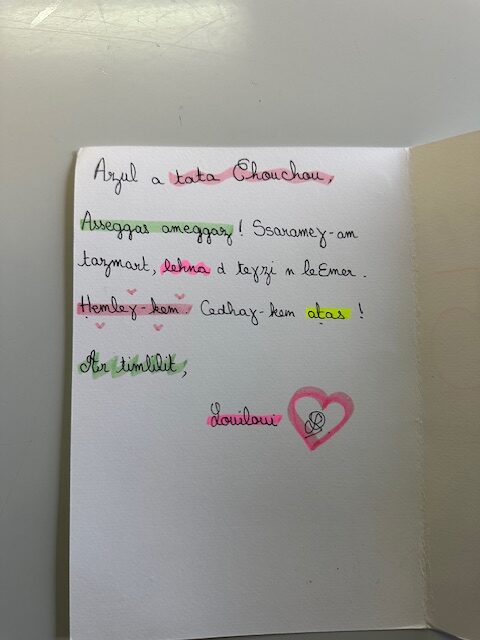 Azul a tata Chouchou,
Asseggas ameggaz ! Ssaramey-am
tazmart, lehna d teyzi n leEmer.
Ḥemley-kem. Cedhay-kem aṭas !
Ar timlilit,
Louiloui